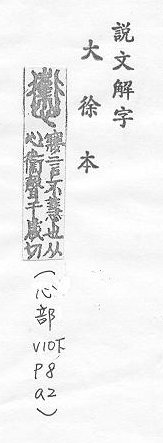 說文解字
大徐本
寱言不慧也从
心衞聲于歲切
(心部 V10下 P8 a2)